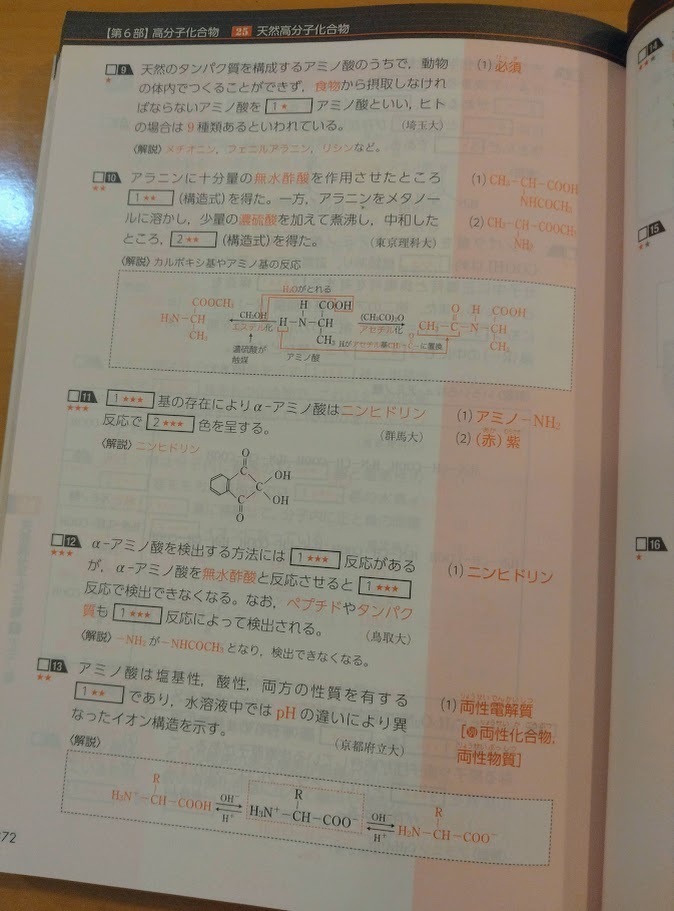 【第6部】高分子化合物 25 天然高分子化合物
□9 天然のタンパク質を構成するアミノ酸のうちで，動物
★ の体内でつくることができず，食物から摂取しなけれ
ばならないアミノ酸を 1★ アミノ酸といい，ヒト
の場合は9種類あるといわれている。 (埼玉大)
〈解説〉メチオニン，フェニルアラニン，リシンなど。
(1) 必須
□10 アラニンに十分量の無水酢酸を作用させたところ
★★ 1★★ (構造式)を得た。一方，アラニンをメタノー
ルに溶かし，少量の濃硫酸を加えて煮沸し，中和した
ところ，2★★ (構造式)を得た。 (東京理科大)
(1) CH₃－CH－COOH
NHCOCH₃
(2) CH₃－CH－COOCH₃
NH₂
〈解説〉カルボキシ基やアミノ基の反応
H₂Oがとれる
COOCH₃
H₂N－CH
CH₃
CH₃OH
エステル化
濃硫酸が
触媒
H COOH
H－N－CH
CH₃
アミノ酸
(CH₃CO)₂O
アセチル化
O H COOH
CH₃－C－N－CH
CH₃
□11 1★★★ 基の存在によりα－アミノ酸はニンヒドリン
★★★ 反応で 2★★★ 色を呈する。 (群馬大)
(1) アミノ－NH₂
(2) (赤)紫
〈解説〉ニンヒドリン
O
C
C
OH
OH
C
O
□12 α－アミノ酸を検出する方法には 1★★★ 反応がある
★★★ が，α－アミノ酸を無水酢酸と反応させると 1★★★
反応で検出できなくなる。なお，ペプチドやタンパク
質も 1★★★ 反応によって検出される。 (鳥取大)
〈解説〉－NH₂が－NHCOCH₃となり，検出できなくなる。
(1) ニンヒドリン
□13 アミノ酸は塩基性，酸性，両方の性質を有する
★★ 1★★ であり，水溶液中ではpHの違いにより異
なったイオン構造を示す。 (京都府立大)
(1) 両性電解質
[㊙両性化合物，
両性物質]
〈解説〉
R
H₃N⁺－CH－COOH
OH⁻
H⁺
R
H₃N⁺－CH－COO⁻
OH⁻
H⁺
R
H₂N－CH－COO⁻
72
14
★★★
15
★★
□16
★